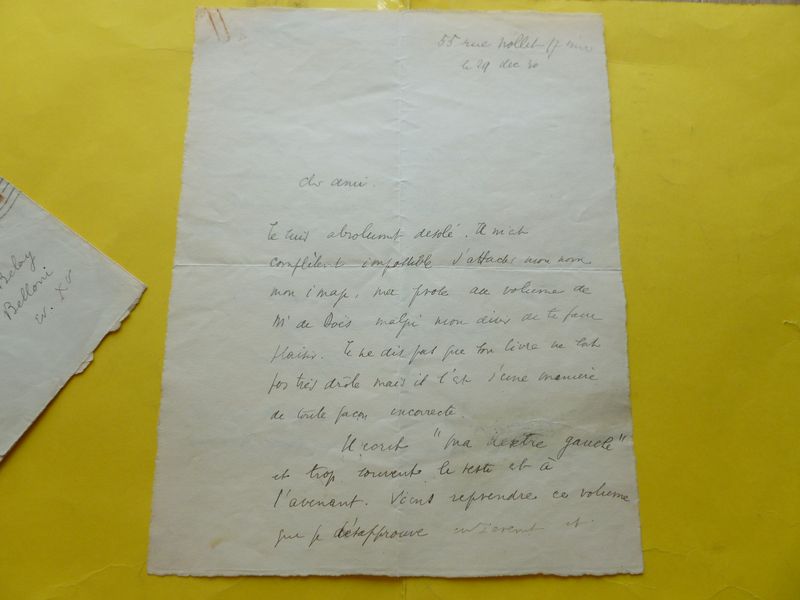 55 rue Nollet 17
le 29 dec 30
cher ami.
Je suis absolument désolé. Il m'est
complètement impossible d'attacher mon nom
mon image, ma prose au volume de
Mr de malgré mon désir de te faire
plaisir. Je ne dis pas que son livre ne soit
pas très drôle mais il l'est d'une manière
de toute façon incorrecte.
Il écrit "ma dextre gauche"
et trop souvent le reste est à
l'avenant. Viens reprendre ce volume
que je désapprouve et
Belloni